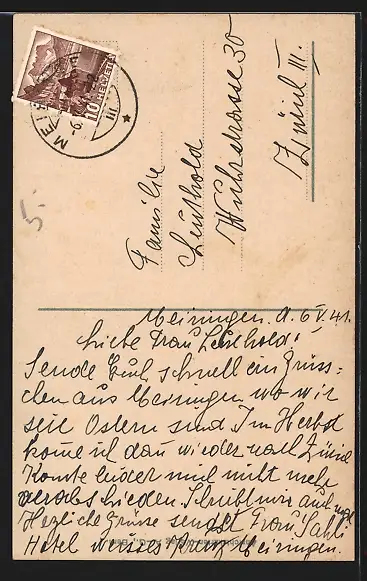 HELVETIA
10
MEI
-6.
III
5.-
Familie
Leuthold
Wuhrstrasse 30
Zürich III.
Meiringen d. 6 V. 41.
Liebe Frau Leuthold!
Sende Euch schnell ein Grüss-
chen aus Meiringen wo wir
seit Ostern sind Im Herbst
kome ich dan wieder nach Zürich
Konte leider mich nicht mehr
verabschieden. Schreibt mir auch mal
Herzliche Grüsse sendet Frau Sahli
Hotel weisses Kreuz Meiringen.